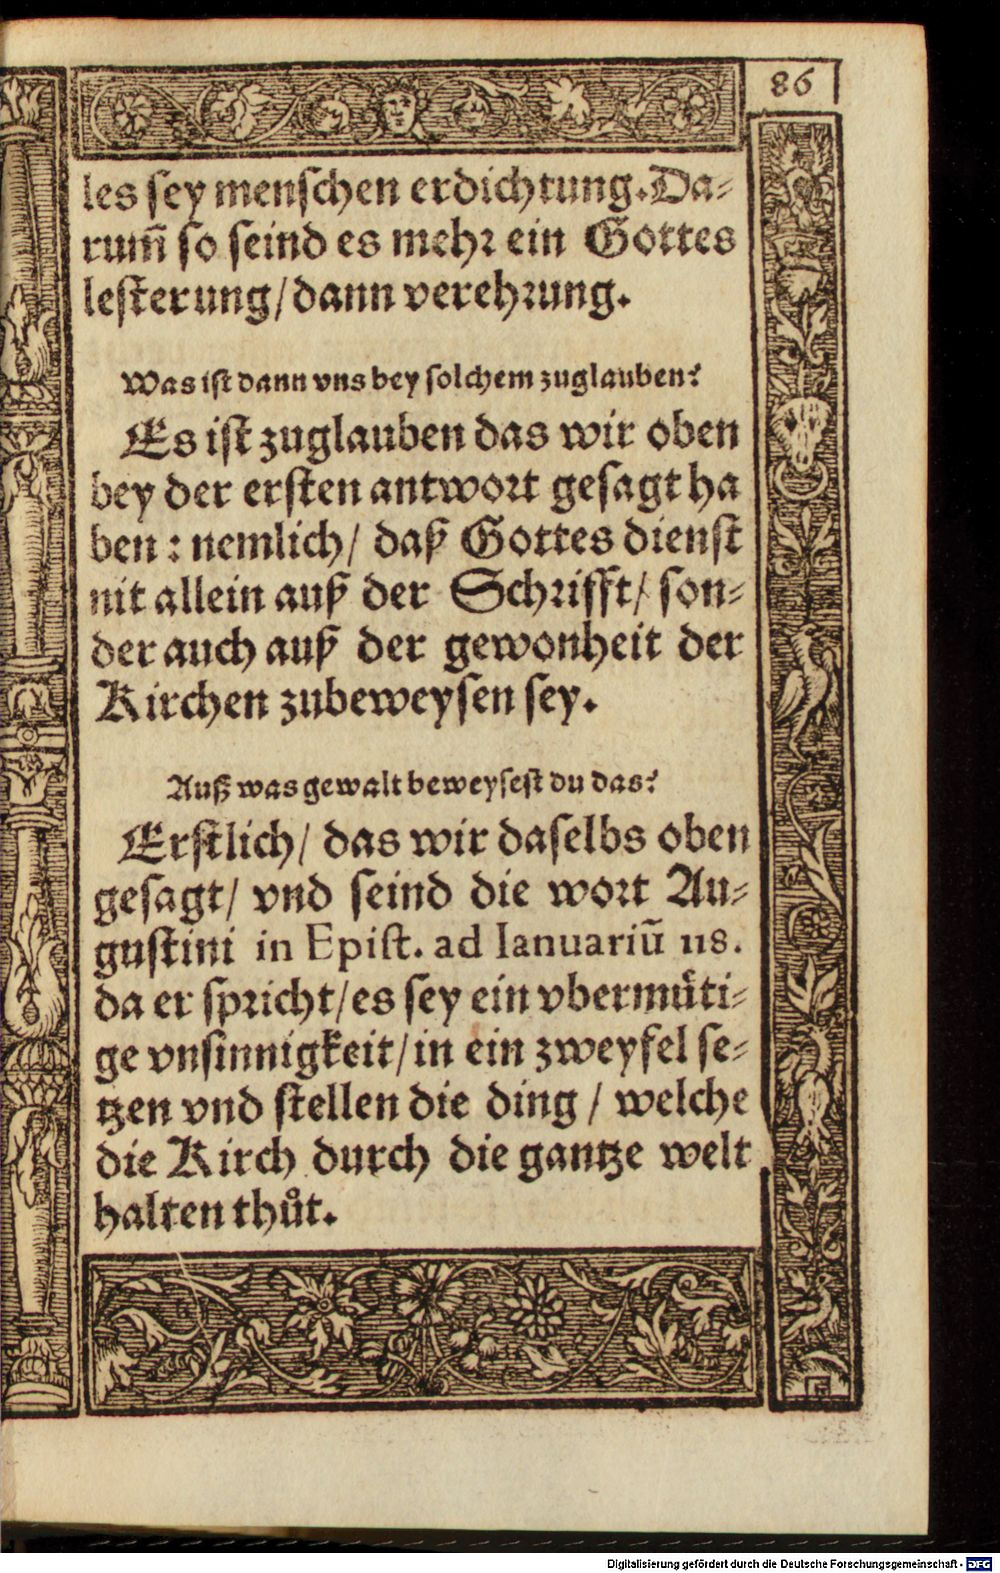 86
les sey menschen erdichtung. Da⸗
rum̃ so seind es mehr ein Gottes
lesterung/dann verehrung.
Was ist dann vns bey solchem zuglauben?
Es ist zuglauben das wir oben
bey der ersten antwort gesagt ha
ben: nemlich/ daß Gottes dienst
nit allein auß der Schrifft/ son⸗
der auch auß der gewonheit der
Kirchen zubeweysen sey.
Auß was gewalt beweysest du das?
Erstlich/ das wir daselbs oben
gesagt/ vnd seind die wort Au⸗
gustini in Epist. ad Ianuariū 118.
da er spricht/es sey ein vbermuͤti⸗
ge vnsinnigkeit/in ein zweyfel se⸗
tzen vnd stellen die ding / welche
die Kirch durch die gantze welt
halten thuͦt.
Digitalisierung gefördert durch die Deutsche Forschungsgemeinschaft - DFG